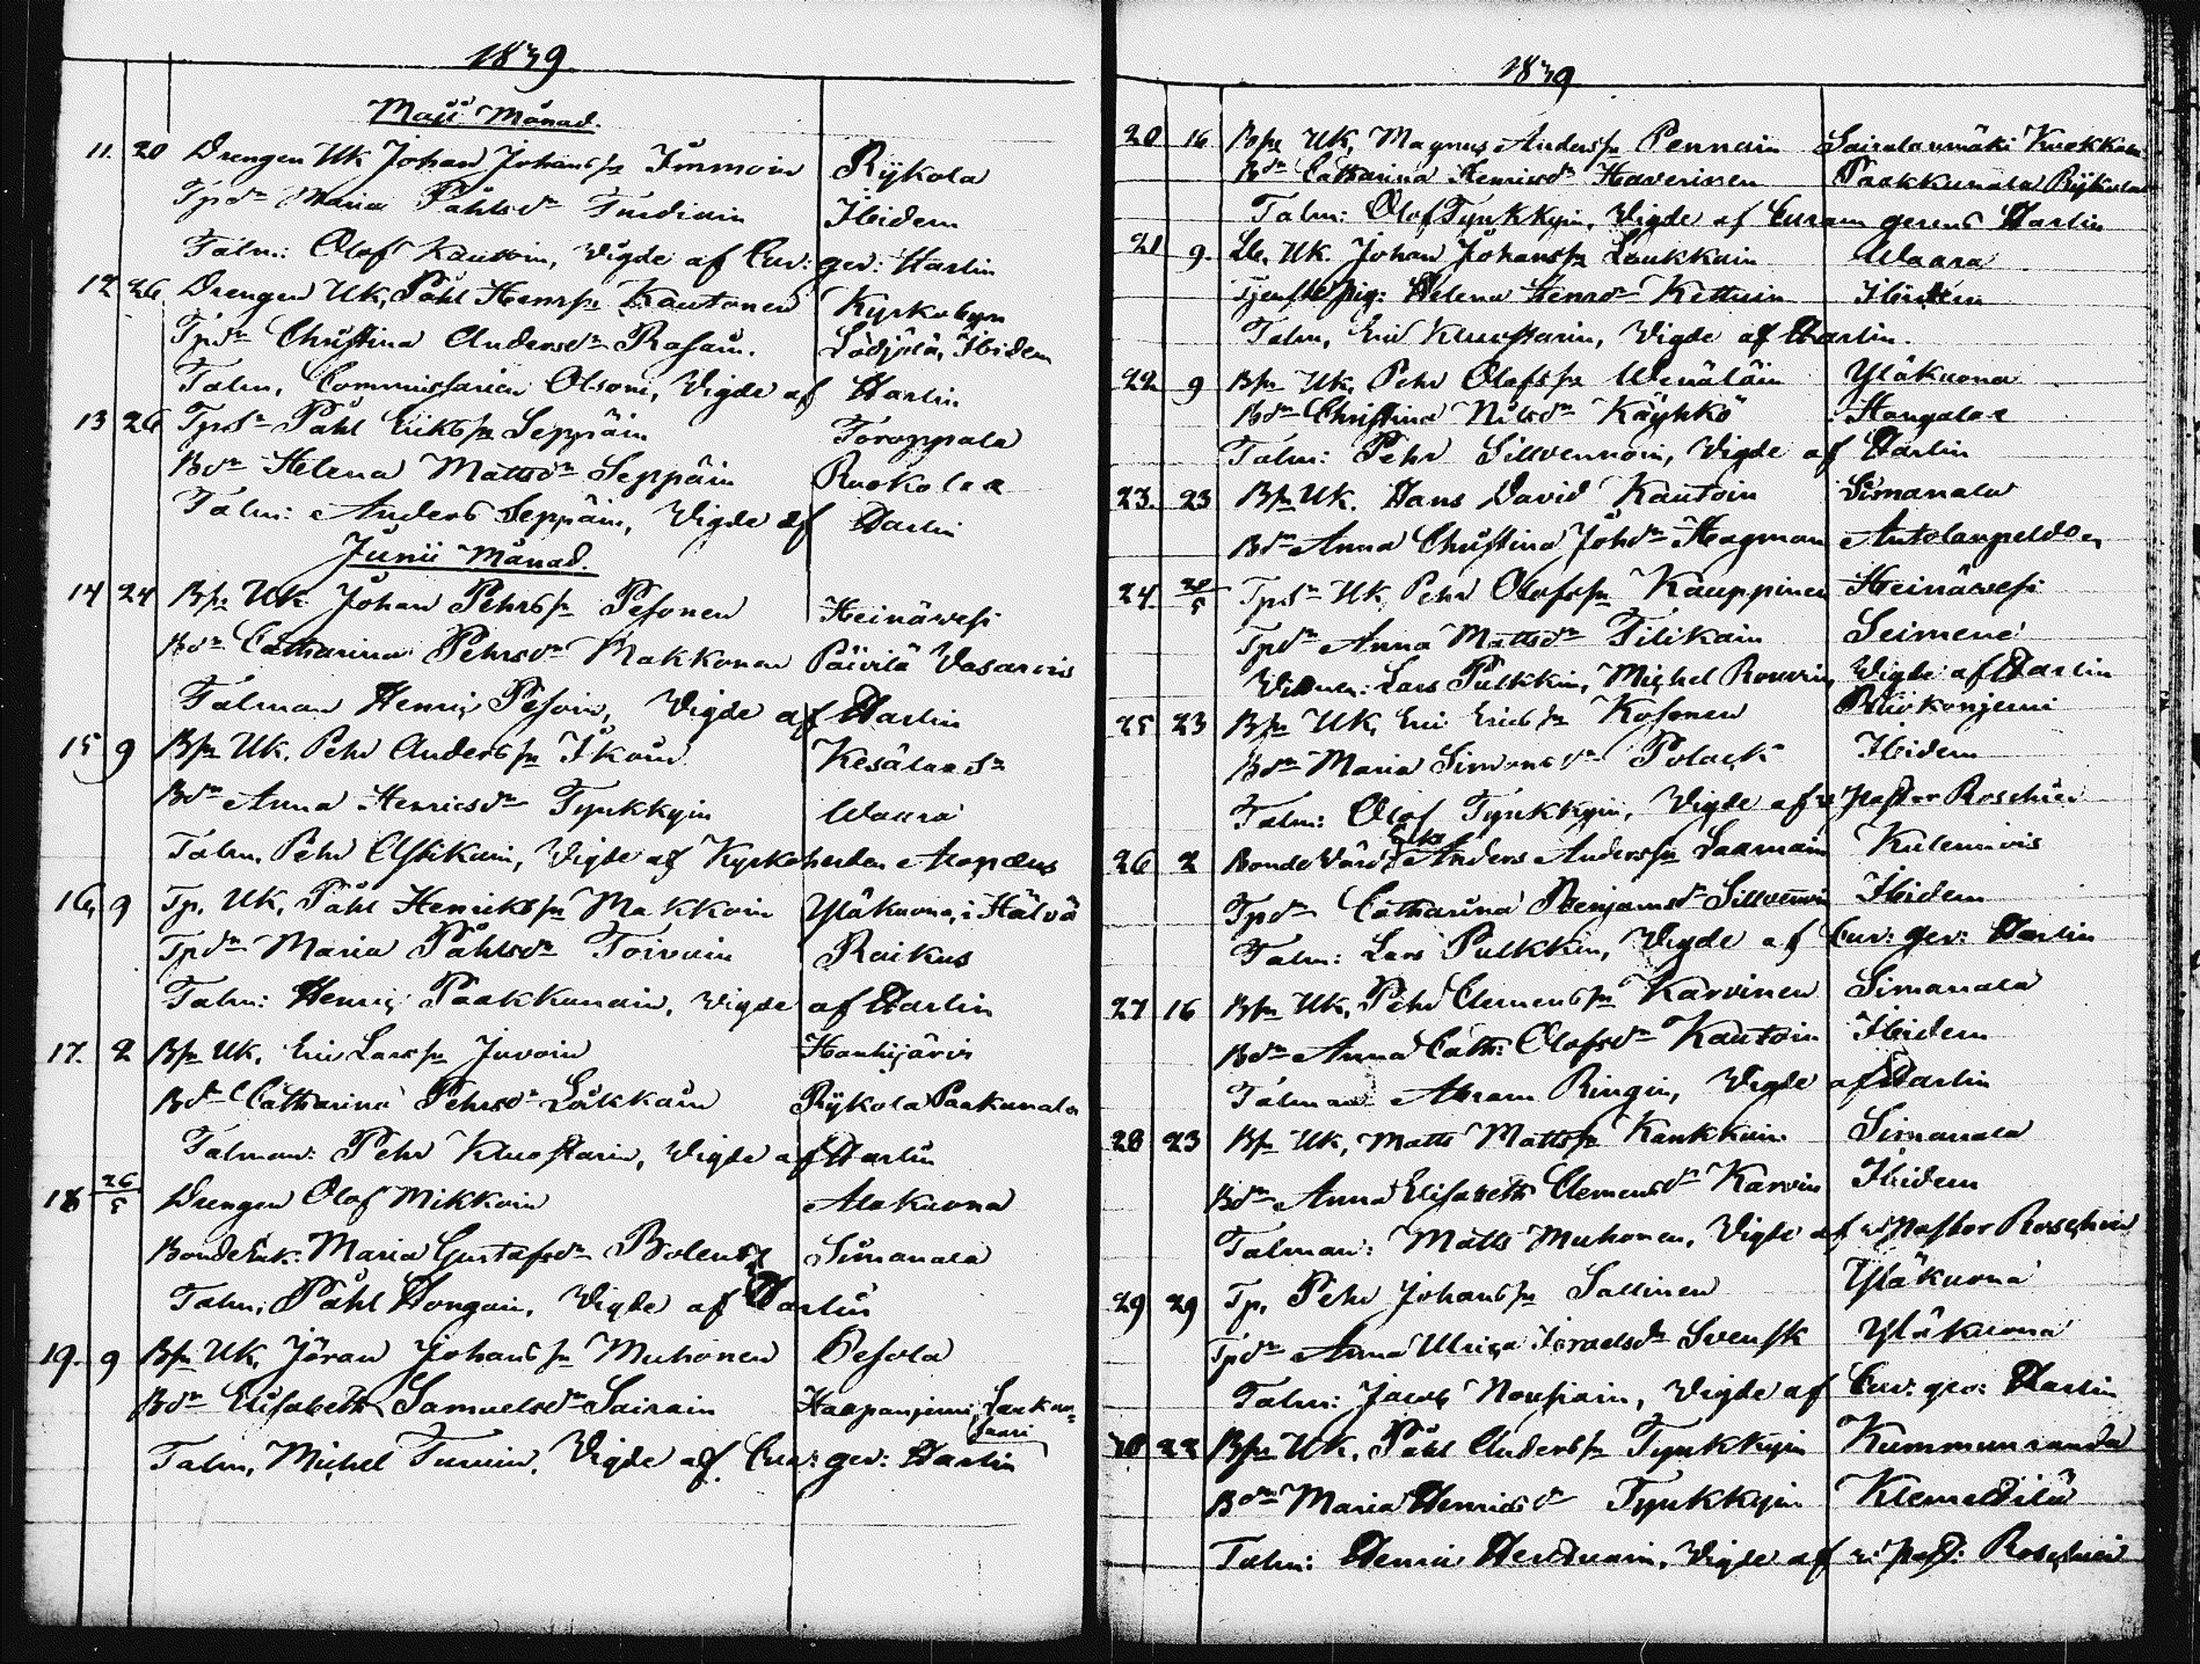 1839.
Maji Månad.
11. 20 Drengen Uk Johan Johansſn Immoin Rÿkola
Tpdr Maria Påhlsdr Turdiain Ibidem
Talm: Olof Kautoin, Vigde af Cur: ger: Harlin
12 26 Drengen Uk, Påhl Henrſn Kautonen Kyrkobyn
Tpdr Christina Andersdr Ibidem
Talm, Commissarien Olsoni, Vigde af Harlin
13 26 Påhl Eriksſn Seppäin Toroppala
Bdr Helena Mattsdr Seppäin Ruokolax
Talm: Anders Seppäin, Vigde af Harlin
Junii Månad.
14 24 Bſn Uk Johan Pehrsſn Pesonen Heinävesi
Bdr Catharina Pehrsdr Makkonen Päivilä Vasarois
Talman Henric Pesoin, Vigde af Harlin
15 9 Bſn Uk. Pehr Andersſn Ikoin Kesälax Sn
Bdr Anna Henricsdr Tynkkyin Waara
Talm. Pehr Astikain, Vigde af Kyrkoherden Alopæus
16, 9 Tp. Uk, Påhl Henriksſn Makkoin Yläkuona, i Hälvä
Tpdr Maria Påhlsdr Toivain Raikus
Talm: Henric Paakkunain, Vigde af Harlin
17. 2 Bſn Uk, Eric Larsſn Juvoin Hanhijärvi
Bdr Catharina Pehrsdr Rÿkola Paakunala
Talman: Pehr Kluostarin, Vigde af Harlin
18 26/5 Drengen Olof Mikkoin Alakuona
Bonde Enk: Maria Gustafsdr Simanala
Talm: Påhl Hongain, Vigde af Harlin
19. 9 Bſn Uk, Jöran Johansſn Muhonen Pesola
Bdr Elisabeth Samuelsdr Sairain Haapanjemi,
saari
Talm, Michel Turuin, Vigde af Cur: ger: Harlin
1839
20 16 Bſn Uk, Magnus Andersſn Pennain Sairalanmäki
Bdr Catharina Henricsdr Haverinen Paakkunala Rÿkola
Talm: Olof Tynkkyin, Vigde af Curam gerens Harlin
21 9. Uk. Johan Johansſn Laukkain Waara
Tjenstepig: Helena Henrsdr Kettuin Ibidem
Talm, Eric Kluostarin, Vigde af Harlin.
22 9 Bſn Uk, Pehr Olofsſn Wenäläin Yläkuona
Bdr Christina Nilsdr Käyhkö
Talm: Pehr Sillvennoin, Vigde af Harlin
23. 23 Bſn Uk. Hans David Kautoin Simanala
Bdr Anna Christina Johdr Hagman
24. 20/5 Uk Pehr Olofsſn Kauppinen Heinävesi
Tpdr Anna Mattsdr Tilikain
Lars Pulkkin, Michel Vigde af Harlin
25 23 Bſn Uk, Eric Ericsſn Kosonen
Bdr Maria Simonsdr Polack Ibidem
Talm: Olof Tynkkyin, Vigde af v: Pastor Roschier
Enkl.
26 2 Bonde Anders Andersſn Laamain Kulennois
Tpdr Catharina Benjamsdr Sillvennoin Ibidem
Talm: Lars Pulkkin, Vigde af Cur: ger: Harlin
27 16 Bſn Uk, Pehr Clemensſn Karvinen Simanala
Bdr Anna Cath: Olofsdr Kautoin Ibidem
Talman Abram Ringin, Vigde af Harlin
28 23 Bſn Uk, Matts Mattsſn Kankkuin Simanala
Bdr Anna Elisabeth Clemensdr Karvin Ibidem
Talman: Matts Muhonen, Vigde af v: Pastor Roschier
29 29 Tp, Pehr Johansſn Sallinen Yläkuona
Tpdr Anna Ulrica Israelsdr Svensk Yläkuona
Talm: Jacob Nousiain, Vigde af Cur: ger: Harlin
30 22 Bſn Uk, Påhl Andersſn Tynkkyin Kummunranda
Bdr Maria Henricsdr Tynkkyin
Talm: Henric Vigde af v: Past: Roschier